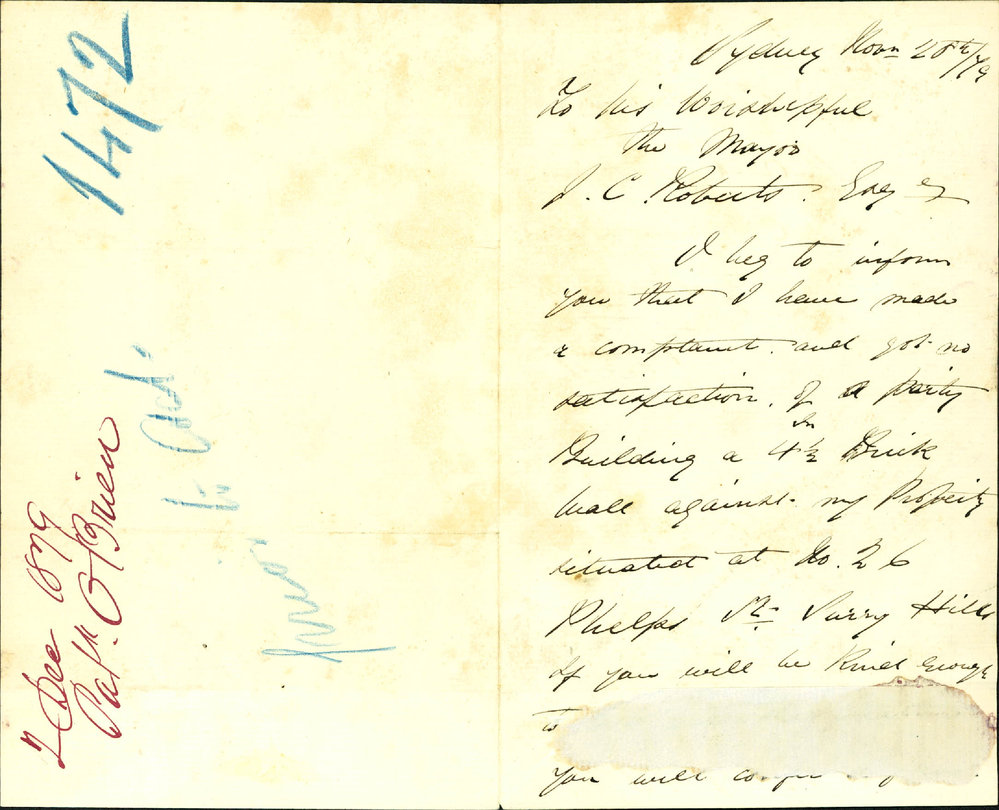 1472
2 Dec 1879
Patk. O'Brien
Sydney Novr 28th/79
To his Worshupful
the Mayor
J. C. Roberts. Esq
I beg to inform
you that I have made
a complaint. and got no
satisfaction. of a party
Building a 4½ In Brick
wall against my Property
situated at No. 26
Phelps St. Surry Hills
If you will be Kind enough
to
you will